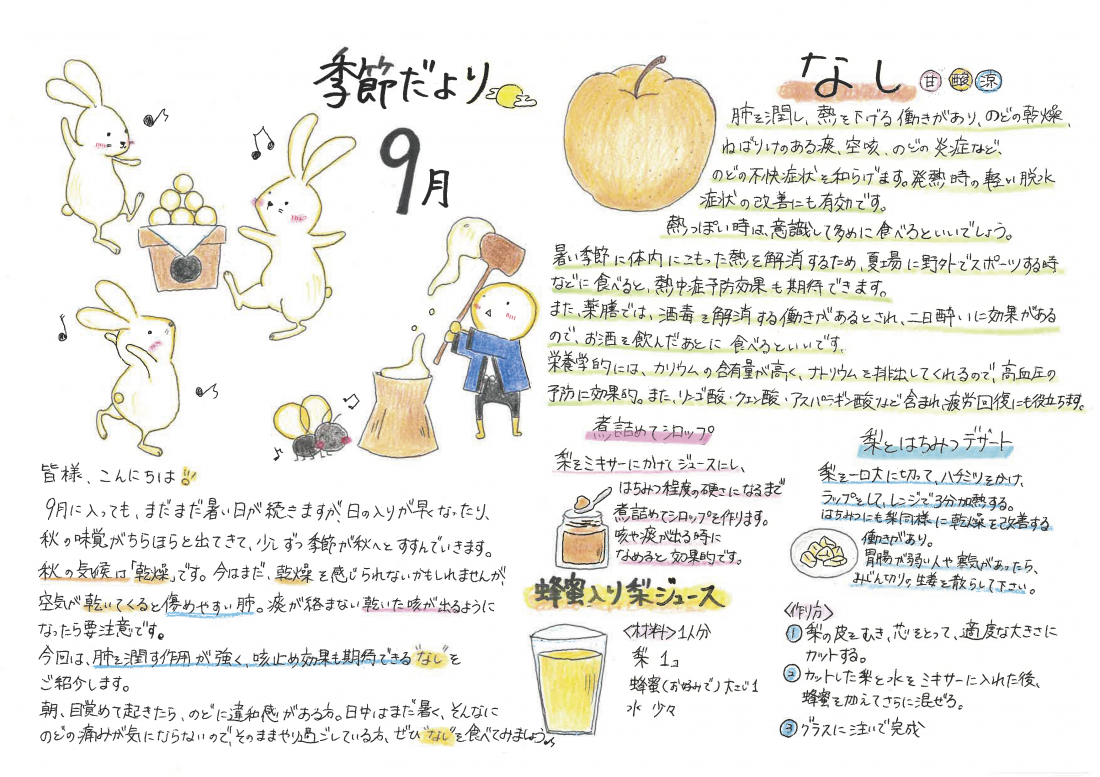 季節だより
9月
皆様、こんにちは!!
9月に入っても、まだまだ暑い日が続きますが、日の入りが早くなったり、
秋の味覚がちらほらと出てきて、少しずつ季節が秋へとすすんでいきます。
秋の気候は「乾燥」です。今はまだ、乾燥を感じられないかもしれませんが、
空気が乾いてくると傷めやすい肺。痰が絡まない乾いた咳が出るように
なったら要注意です。
今回は、肺を潤す作用が強く、咳止め効果も期待できる"なし"を
ご紹介します。
朝、目覚めて起きたら、のどに違和感がある方。日中はまだ暑く、そんなに
のどの痛みが気にならないので、そのままやり過ごしている方、ぜひ"なし"を食べてみましょう♪
なし 甘 酸 涼
肺を潤し、熱を下げる働きがあり、のどの乾燥、
ねばりけのある痰、空咳、のどの炎症など、
のどの不快症状を和らげます。発熱時の軽い脱水
症状の改善にも有効です。
熱っぽい時は、意識して多めに食べるといいでしょう。
暑い季節に体内にこもった熱を解消するため、夏場に野外でスポーツする時
などに食べると、熱中症予防効果も期待できます。
また、薬膳では、酒毒を解消する働きがあるとされ、二日酔いに効果がある
ので、お酒を飲んだあとに食べるといいです。
栄養学的には、カリウムの含有量が高く、ナトリウムを排出してくれるので、高血圧の
予防に効果的。また、リンゴ酸・クエン酸・アスパラギン酸など含まれ、疲労回復にも役立ちます。
煮詰めてシロップ
梨をミキサーにかけてジュースにし、
はちみつ程度の硬さになるまで
煮詰めてシロップを作ります。
咳や痰が出る時に
なめると効果的です。
梨とはちみつデザート
梨を一口大に切って、ハチミツをかけ、
ラップをして、レンジで3分加熱する。
はちみつにも梨同様に乾燥を改善する
働きがあり。
胃腸が弱い人や寒気があったら、
みじん切りの生姜を散らして下さい。
蜂蜜入り梨ジュース
<材料>1人分
梨 1コ
蜂蜜(お好みで)大さじ1
水 少々
<作り方>
① 梨の皮をむき、芯をとって、適度な大きさに
カットする。
② カットした梨と水をミキサーに入れた後、
蜂蜜を加えてさらに混ぜる。
③ グラスに注いで完成